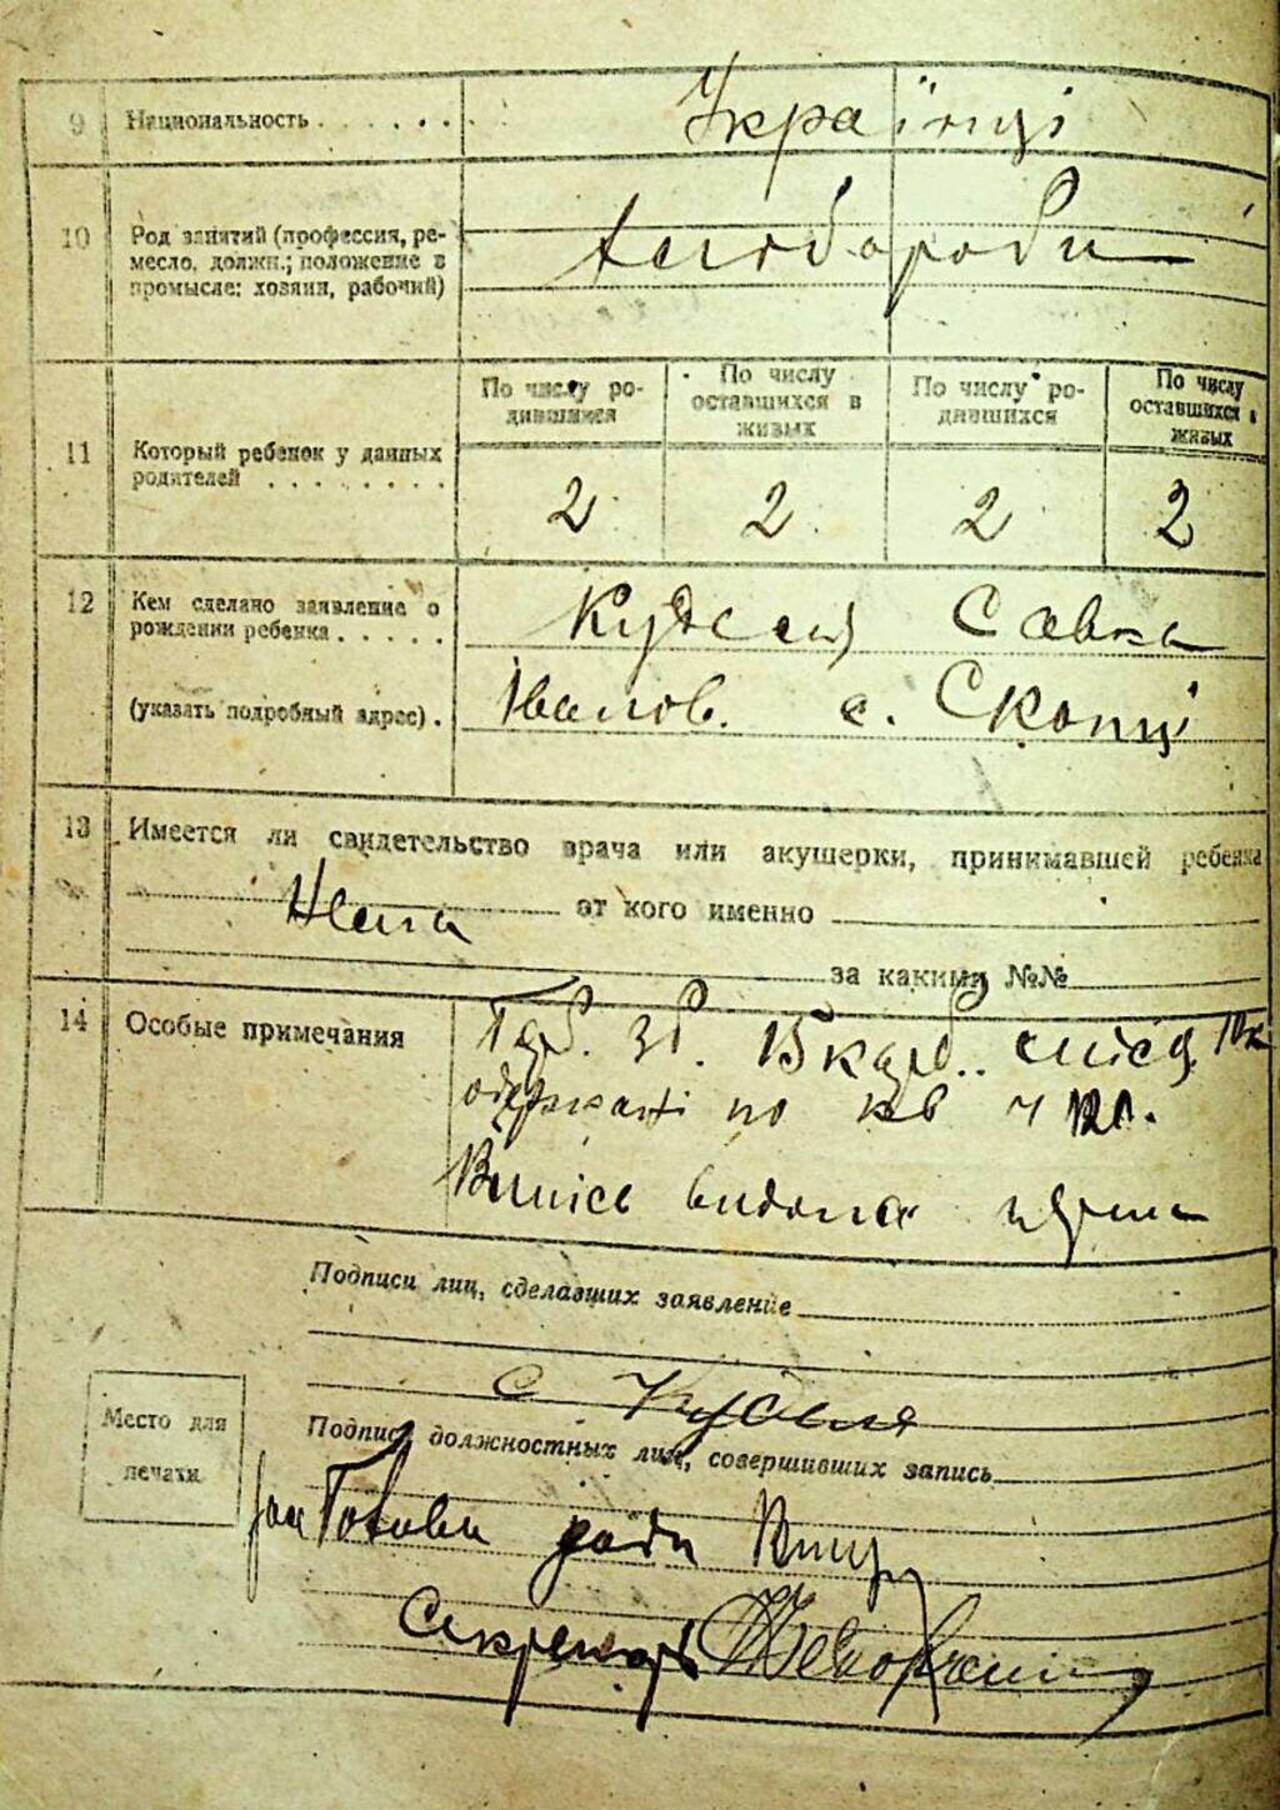 9 Национальность . . . . . . . Українці
10 Род занятий (профессия, ре-
месло, должн.; положение в
промысле: хозяин, рабочий)
хлібороби
По числу ро-
дившихся
По числу
оставшихся в
живых
По числу ро-
дившихся
По числу
оставшихся в
живых
11 Который ребенок у данных
родителей . . . . . . . .
2 2 2 2
12 Кем сделано заявление о
рождении ребенка . . . . .
Савка
(указать подробный адрес) .
Иванов. с. Скопці
13 Имеется ли свидетельство врача или акушерки, принимавшей ребенка
Нема от кого именно
за какими №№
14 Особые примечания
3р. 15к
одержані по кв ч
Випись видана
Подписи лиц, сделавших заявление
С
Подписи должностных лиц, совершивших запись
Место для
печати
Голови ради
Секретарь